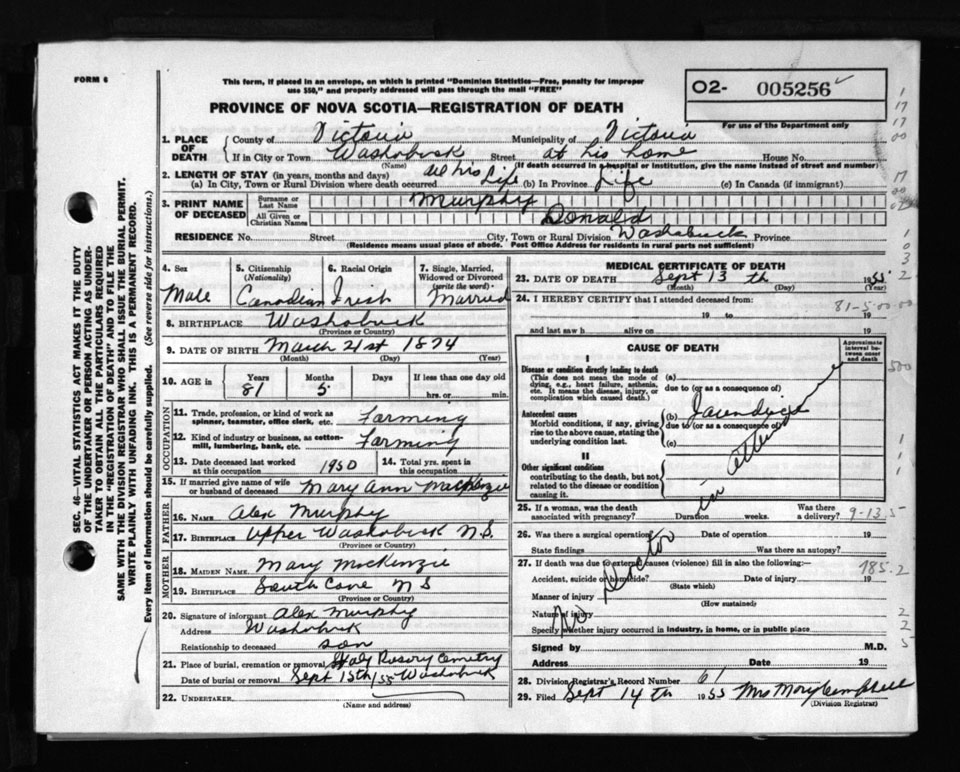 FORM 6
This form, if placed in an envelope, on which is printed "Dominion Statistics—Free, penalty for improper
use $50," and properly addressed will pass through the mail "FREE"
PROVINCE OF NOVA SCOTIA—REGISTRATION OF DEATH
O2- 005256
For use of the Department only
SEC. 46—VITAL STATISTICS ACT MAKES IT THE DUTY
OF THE UNDERTAKER OR PERSON ACTING AS UNDER-
TAKER TO OBTAIN ALL THE PARTICULARS REQUIRED
IN THE "REGISTRATION OF DEATH" AND TO FILE THE
SAME WITH THE DIVISION REGISTRAR WHO SHALL ISSUE THE BURIAL PERMIT.
WRITE PLAINLY WITH UNFADING INK. THIS IS A PERMANENT RECORD.
Every item of information should be carefully supplied. (See reverse side for instructions.)
1. PLACE OF DEATH County of Victoria Municipality of Victoria
If in City or Town Washabuck Street at his home House No.
(Name) (If death occurred in a hospital or institution, give the name instead of street and number)
2. LENGTH OF STAY (in years, months and days)
(a) In City, Town or Rural Division where death occurred all his Life (b) In Province Life (c) In Canada (if immigrant)
3. PRINT NAME OF DECEASED Surname or Last Name Murphy
All Given or Christian Names Donald
RESIDENCE No. Street City, Town or Rural Division Washabuck Province
(Residence means usual place of abode. Post Office Address for residents in rural parts not sufficient)
4. Sex Male
5. Citizenship (Nationality) Canadian
6. Racial Origin Irish
7. Single, Married, Widowed or Divorced (write the word) Married
8. BIRTHPLACE Washabuck
(Province or Country)
9. DATE OF BIRTH March 21st 1874
(Month) (Day) (Year)
10. AGE in Years 81 Months 5 Days If less than one day old hrs. or min.
OCCUPATION
11. Trade, profession, or kind of work as spinner, teamster, office clerk, etc. Farming
12. Kind of industry or business, as cotton-mill, lumbering, bank, etc. Farming
13. Date deceased last worked at this occupation 1950
14. Total yrs. spent in this occupation
15. If married give name of wife or husband of deceased Mary Ann MacKenzie
FATHER
16. NAME Alex Murphy
17. BIRTHPLACE Upper Washabuck N.S.
(Province or Country)
MOTHER
18. MAIDEN NAME Mary MacKenzie
19. BIRTHPLACE South Cove N S
(Province or Country)
20. Signature of informant Alex Murphy
Address Washabuck
Relationship to deceased son
21. Place of burial, cremation or removal Holy Rosary Cemetry
Date of burial or removal Sept 15th/55 Washabuck
22. UNDERTAKER
(Name and address)
MEDICAL CERTIFICATE OF DEATH
23. DATE OF DEATH Sept 13 th 1955
(Month) (Day)
24. I HEREBY CERTIFY that I attended deceased from:
81-5-00-00
19 to 19
and last saw h alive on 19
CAUSE OF DEATH
Approximate interval between onset and death
I
Disease or condition directly leading to death
(This does not mean the mode of dying, e.g., heart failure, asthenia, etc. It means the disease, injury, or complication which caused death.)
(a)
due to (or as a consequence of)
Antecedent causes
Morbid conditions, if any, giving rise to the above cause, stating the underlying condition last.
(b)
due to (or as a consequence of)
(c)
II
Other significant conditions
contributing to the death, but not related to the disease or condition causing it.
No Doctor in attendance
25. If a woman, was the death associated with pregnancy? Duration weeks. Was there a delivery?
9-13.5
26. Was there a surgical operation? Date of operation. 19
State findings Was there an autopsy?
27. If death was due to external causes (violence) fill in also the following:—
185.2
Accident, suicide or homicide? Date of injury. 19
(State which)
Manner of injury
(How sustained)
Nature of injury
Specify whether injury occurred in industry, in home, or in public place
Signed by M.D.
Address Date 19
28. Division Registrar's Record Number 61
29. Filed Sept 14 th 1955 Mrs Mary Campbell
(Division Registrar)